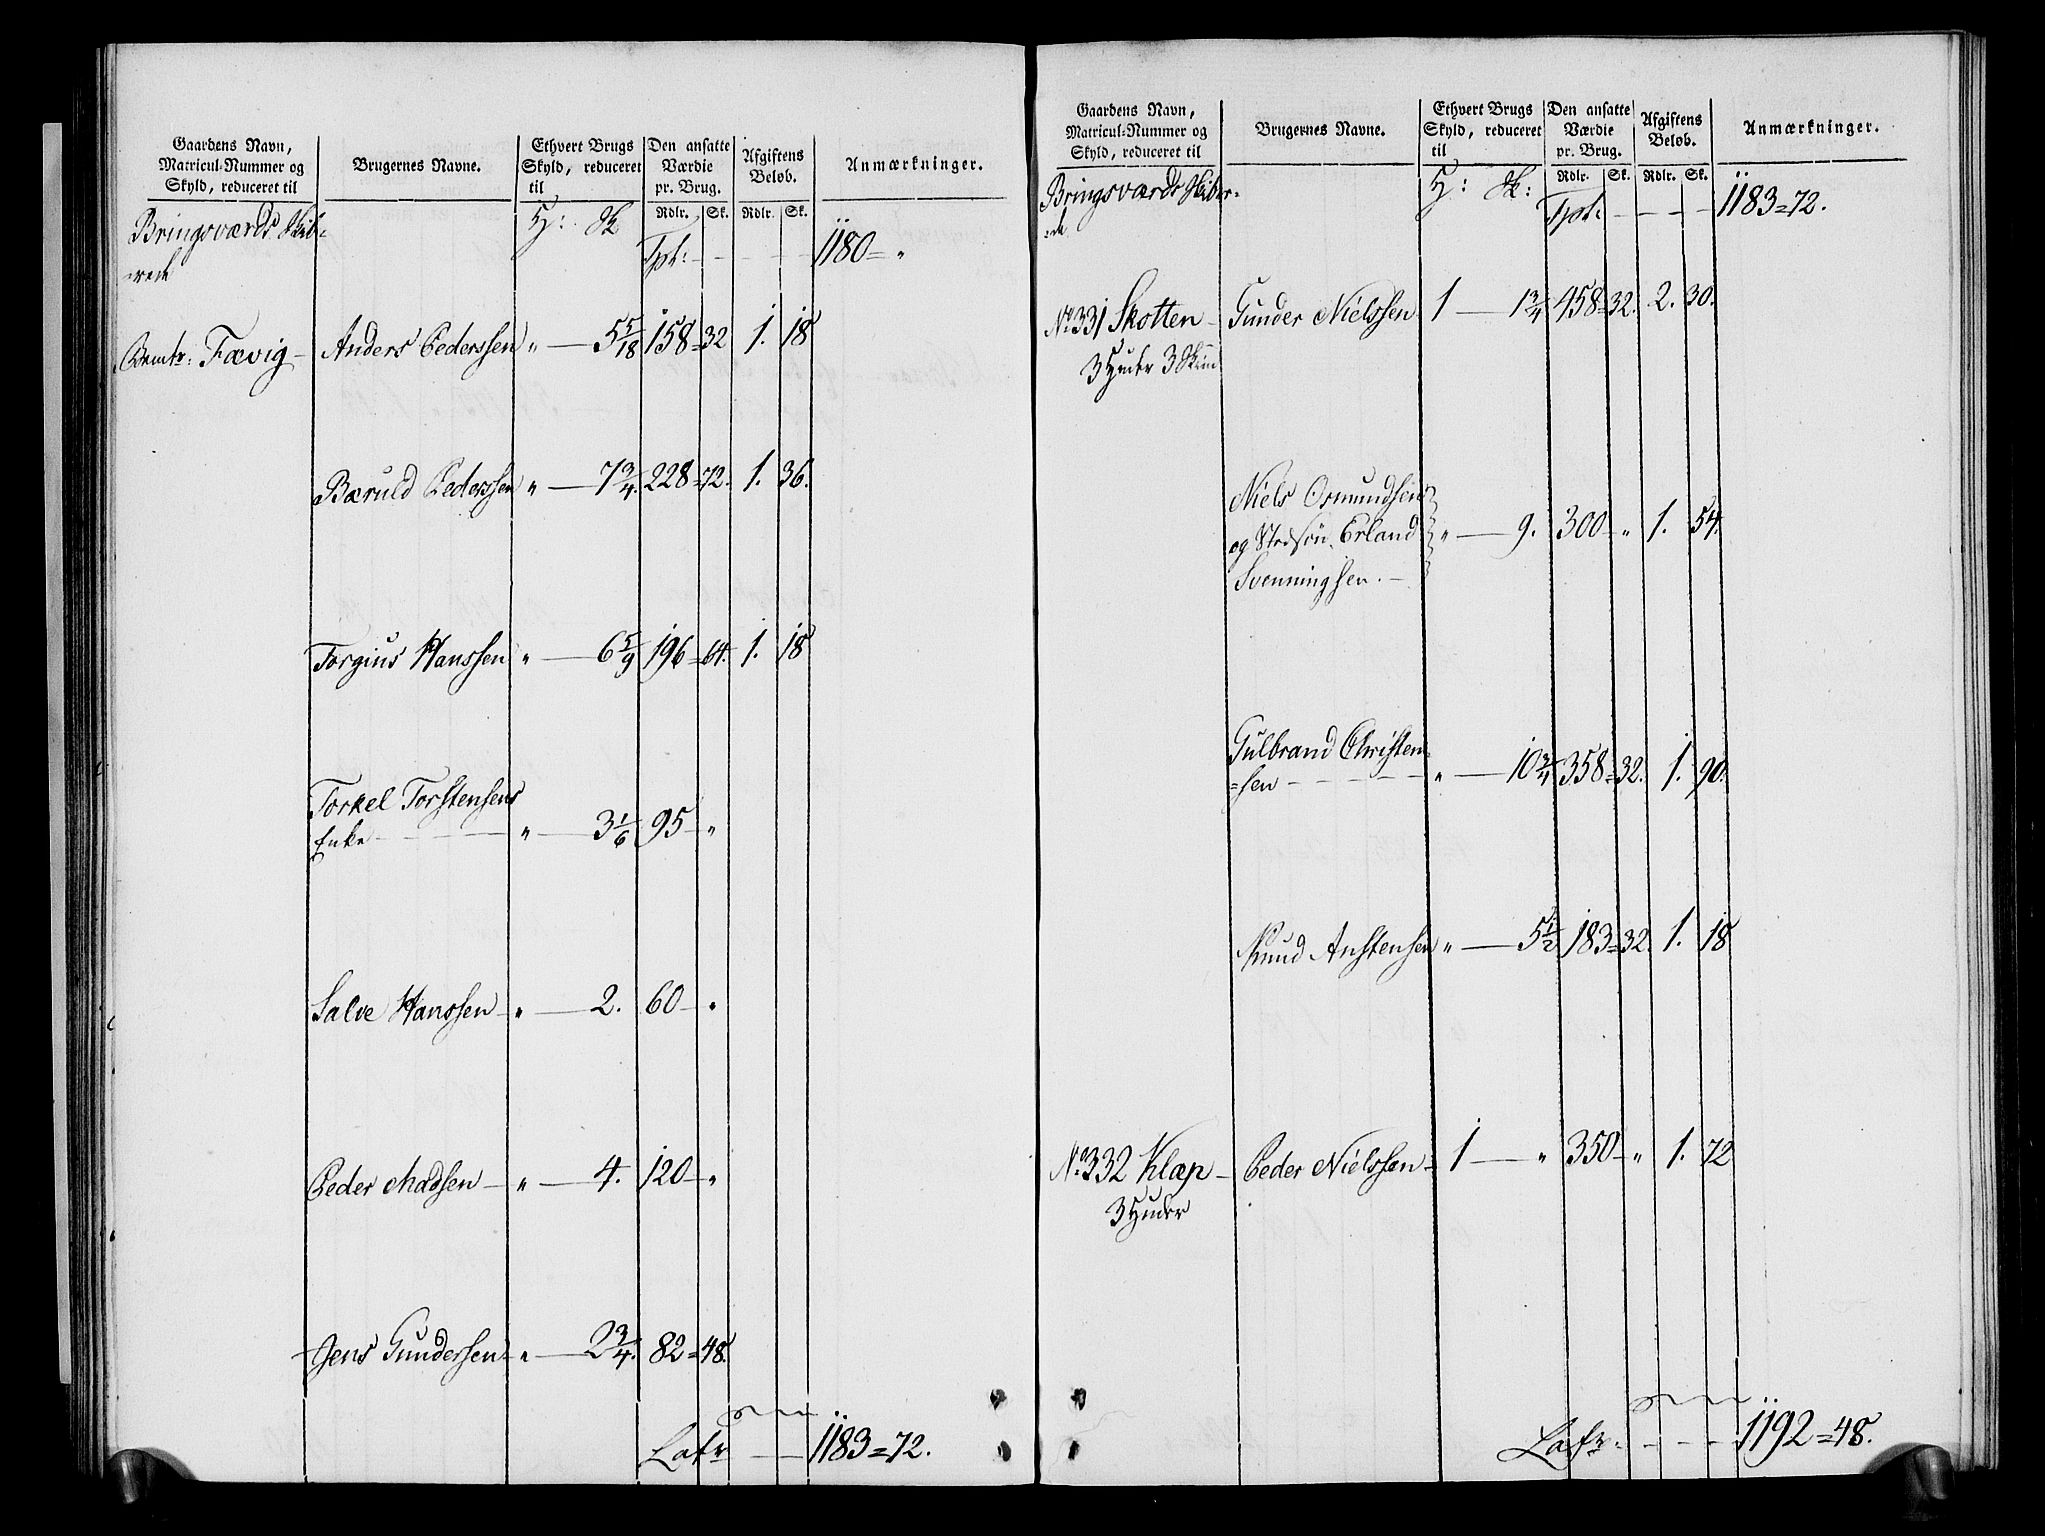 Gaardens Navn,
Matricul-Nummer og
Skyld, reduceret til
Brugernes Navne.
Ethvert Brugs
Skyld, reduceret
til
Den ansatte
Værdie
pr. Brug.
Afgiftens
Beløb.
Anmærkninger.
Rdlr. Sk. Rdlr. Sk.
Bringsværds Skib-
-rede
H: Sk
Tpt: - - - - 1180 = "
Fævig - Anders Pederssen " - 5 5/18 158 = 32 1. 18
Bæruld Pederssen " - 7 3/4. 228 = 72. 1. 36.
Torgius Hanssen " - 6 5/9 196 = 64. 1. 18
Torkel Torstensens
Enke - - - " - 3 1/6 95 - "
Salve Hanssen - " - 2. 60 - "
Peder Madsen - " - 4. 120 - "
Jens Gundersen - " - 2 3/4. 82 = 48.
Latr - - 1183 = 72.
Gaardens Navn,
Matricul-Nummer og
Skyld, reduceret til
Brugernes Navne.
Ethvert Brugs
Skyld, reduceret
til
Den ansatte
Værdie
pr. Brug.
Afgiftens
Beløb.
Anmærkninger.
Rdlr. Sk. Rdlr. Sk.
Bringsværds Skibr-
-ede
H: Sk:
Tpt: - - - - 1183 = 72.
No. 331 Skotten - Gunder Nielssen 1 - 1 3/4 458 = 32. 2. 30.
3 Huder 3 Skind
Niels Osmundsen
og Stedsøn Erland " - 9. 300 - " 1. 54.
Svenningsen. -
Gulbrand Christen-
=sen - - - - " - 10 3/4 358 = 32. 1. 90.
Knud Anstensen " - 5 1/2 183 = 32 1. 18
No. 332 Klæp - Peder Nielssen - 1 - " 350 - " 1. 72
3 Huder
Latr: - - - 1192 = 48.